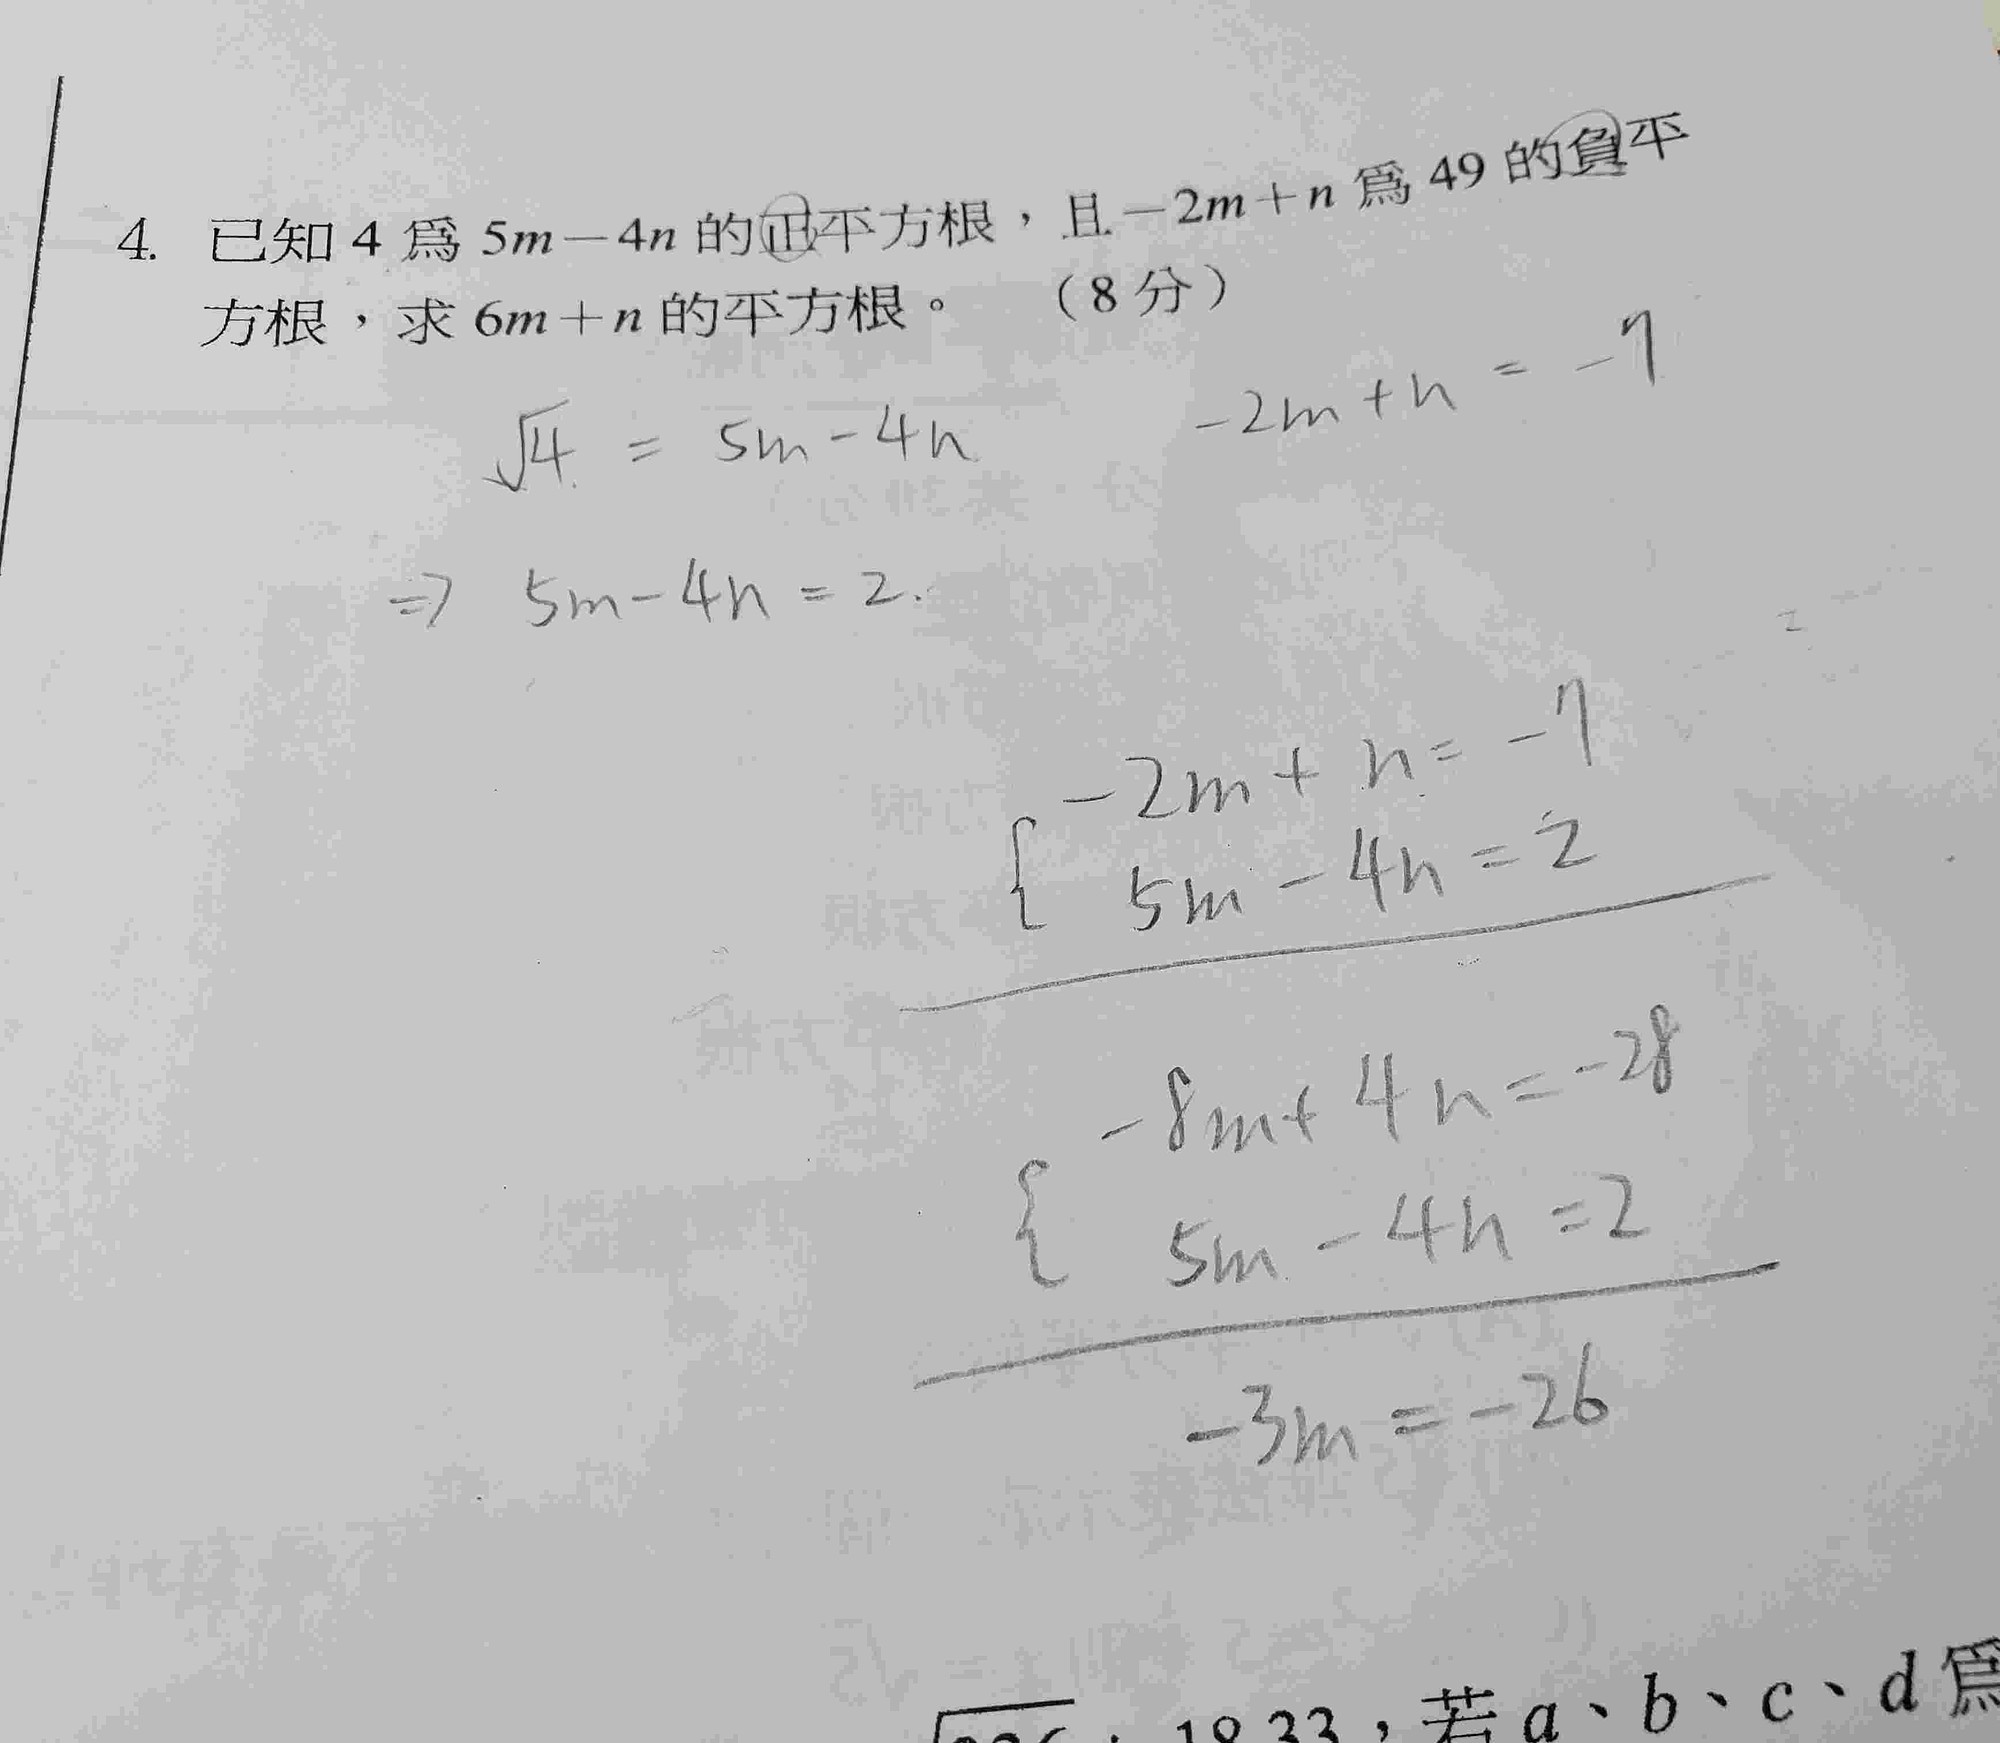 4. 已知 4 爲 5m－4n 的正平方根，且－2m＋n 爲 49 的負平
方根，求 6m＋n 的平方根。 （8 分）
√4 = 5m-4n
-2m+n = -7
⇒ 5m-4n = 2.
-2m+n=-7
5m-4n=2
-8m+4n=-28
5m-4n=2
-3m=-26
18.33，若 a、b、c、d 爲